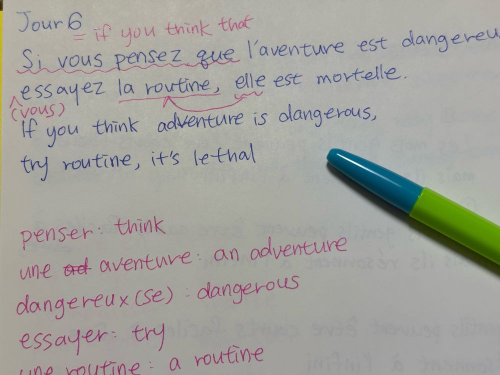 Jour 6
= if you think that
Si vous pensez que l'aventure est dangereu
essayez la routine, elle est mortelle.
(vous)
If you think adventure is dangerous,
try routine, it's lethal
penser: think
une ad aventure: an adventure
dangereux (se): dangerous
essayer: try
une routine: a routine